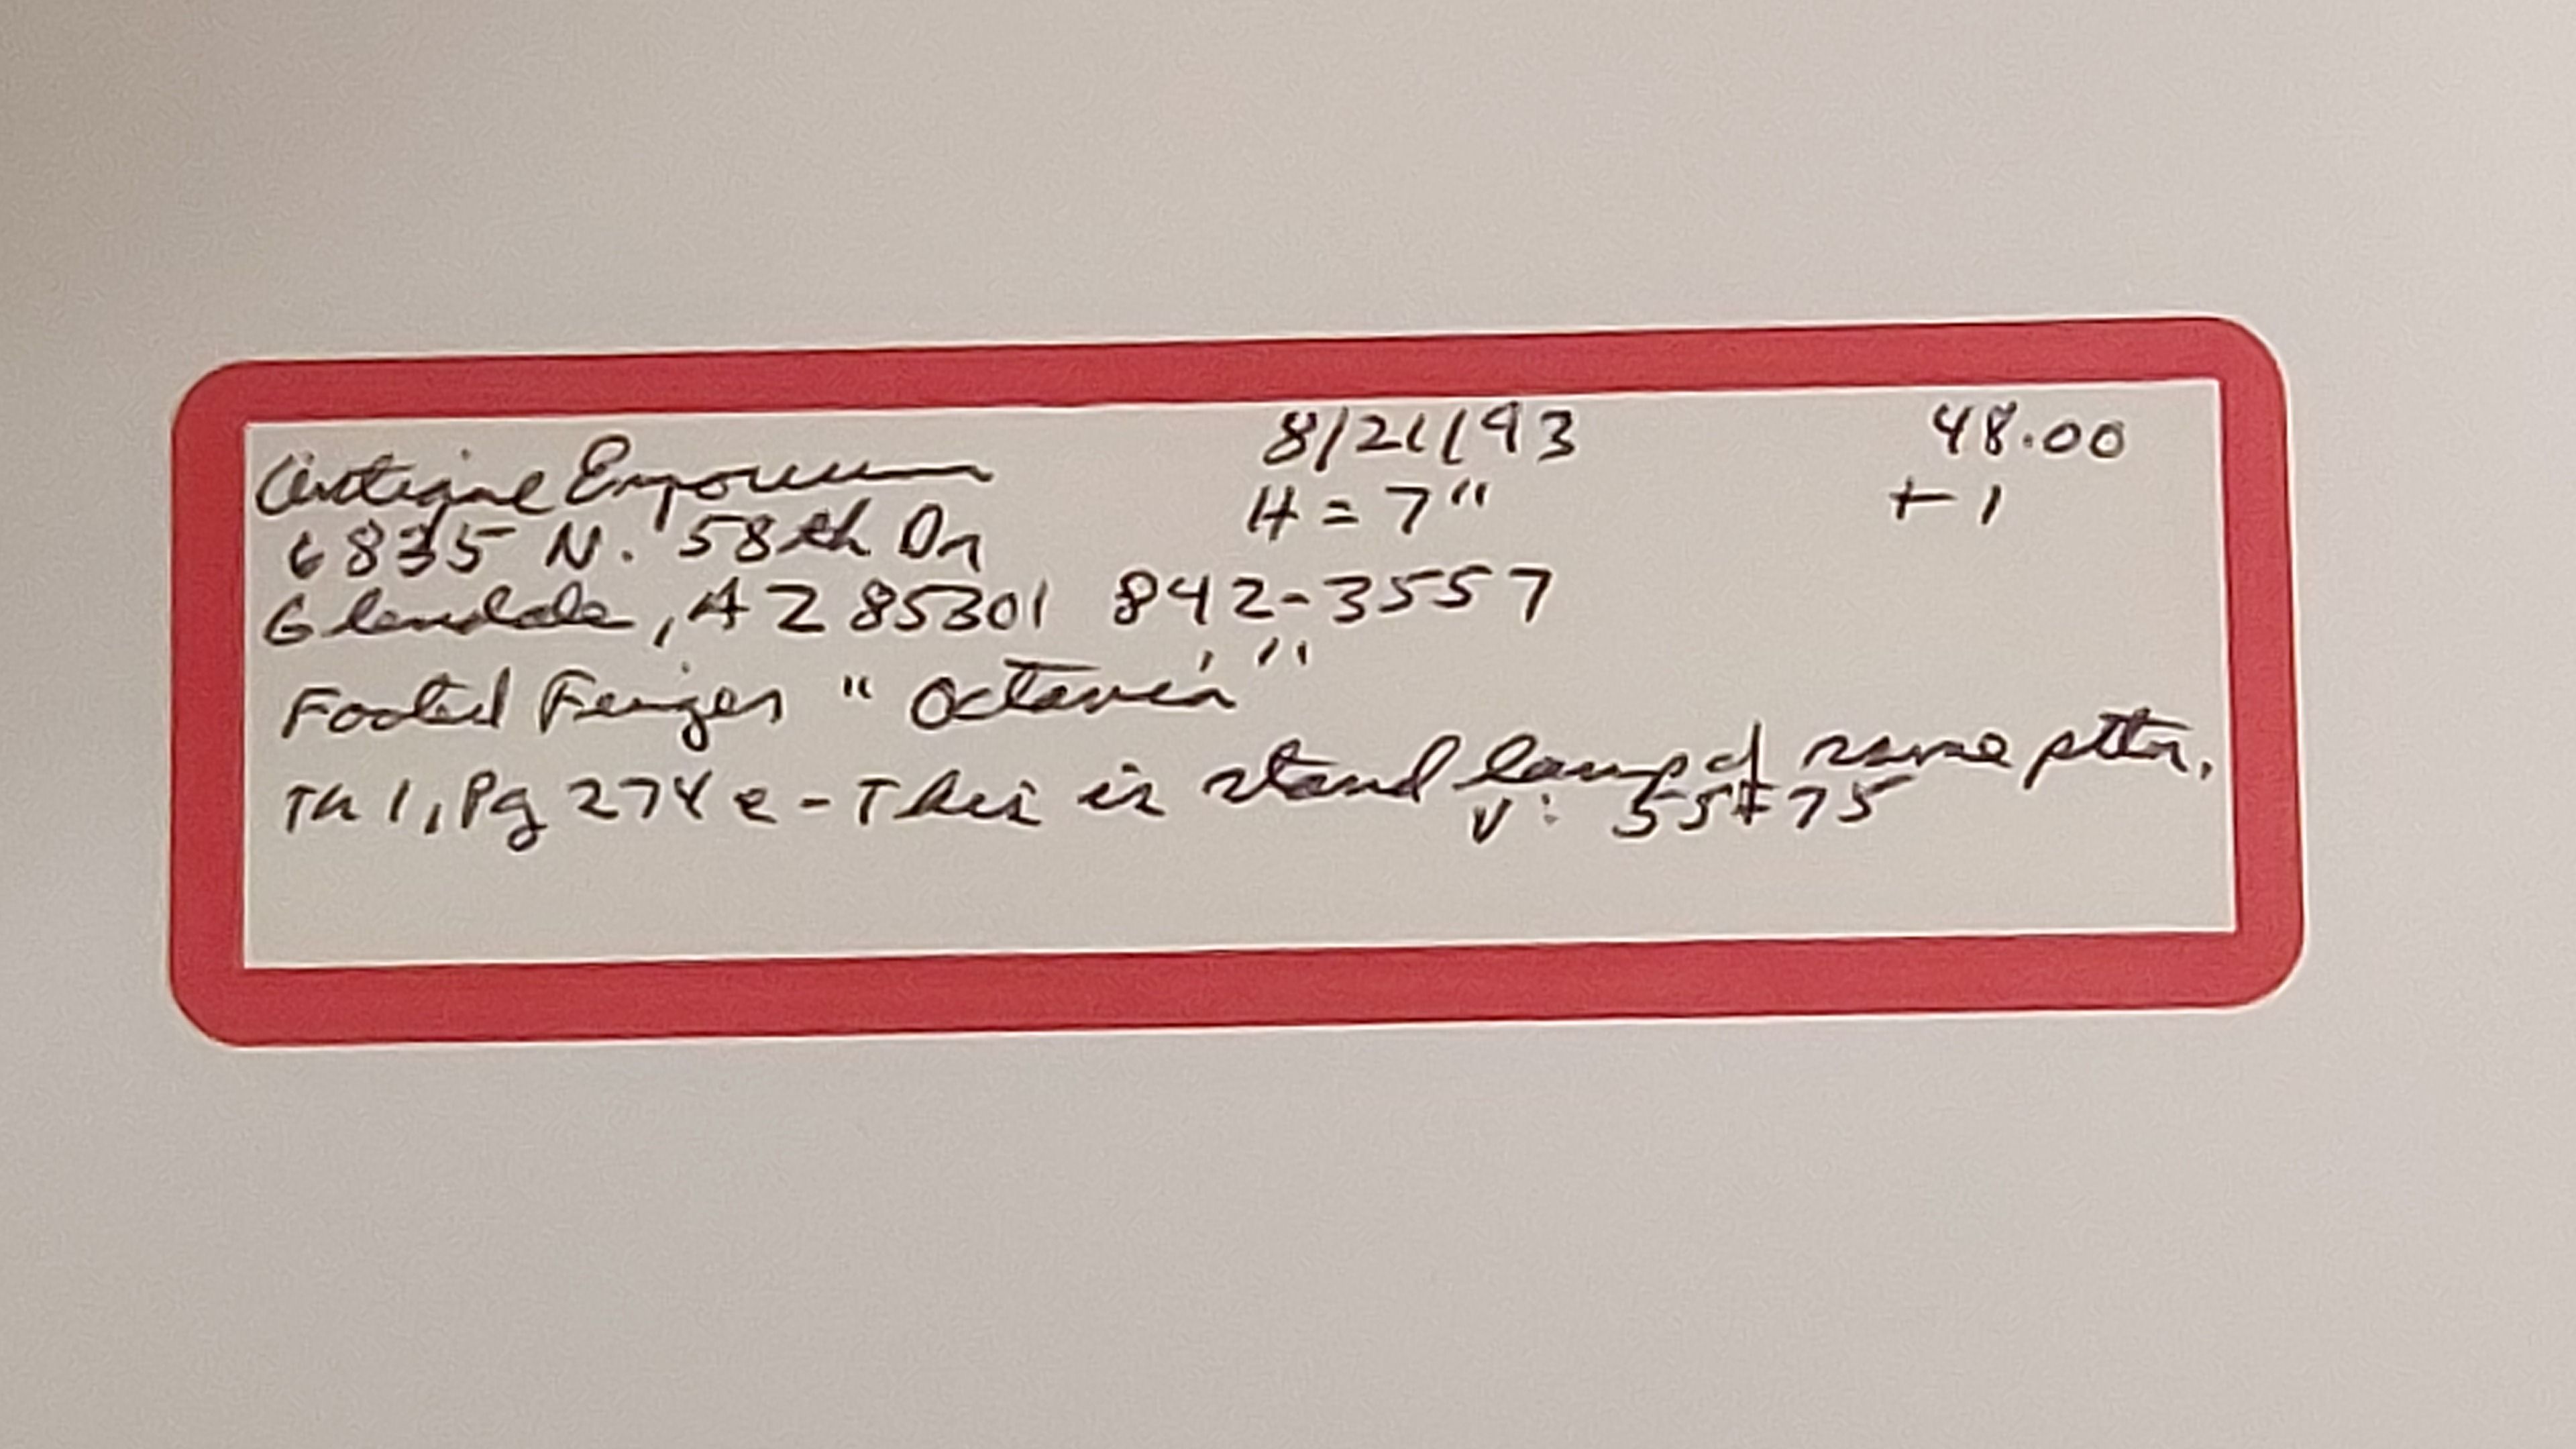 Antique Emporium 8/21/93 48.00
6835 N. 58th Dr H = 7" + 1
Glendale, AZ 85301 842-3557
Footed Finger "Octavia"
Th 1, Pg 274 e - This is stand lamp of same pttn.
V: 55 75